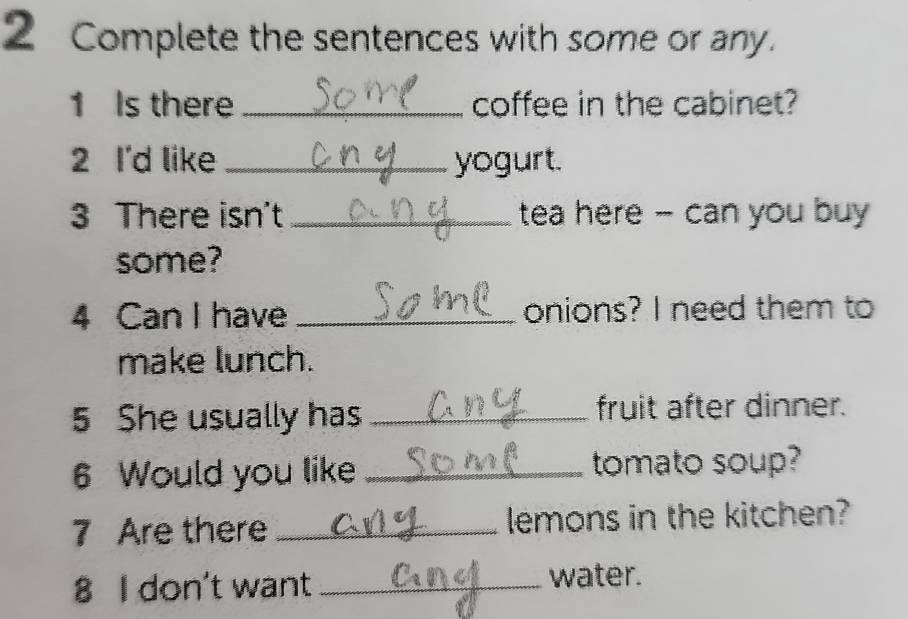 2 Complete the sentences with some or any.
1 Is there some coffee in the cabinet?
2 I'd like any yogurt.
3 There isn't any tea here – can you buy
some?
4 Can I have some onions? I need them to
make lunch.
5 She usually has any fruit after dinner.
6 Would you like some tomato soup?
7 Are there any lemons in the kitchen?
8 I don't want any water.